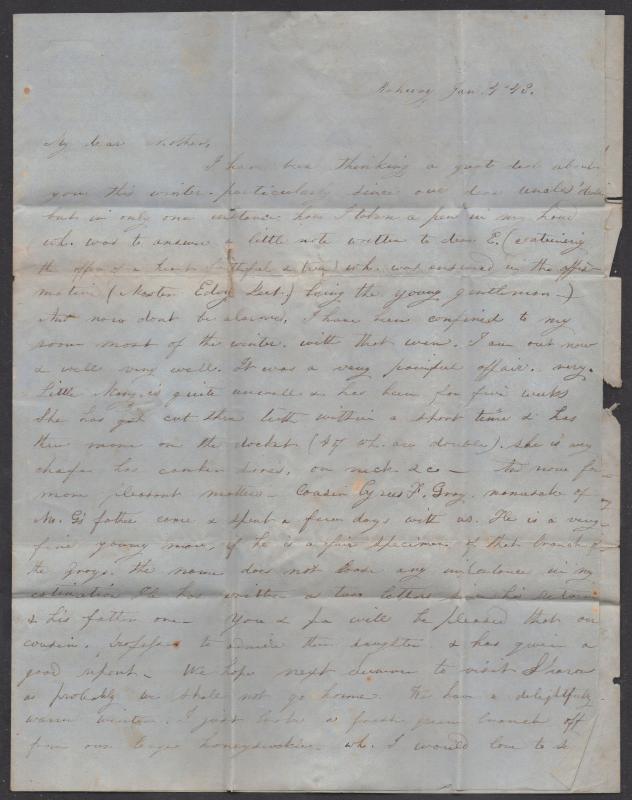 Rahway Jan. 4 43.
My dear Mother,
I have been thinking a good deal about
you this winter. particularly since our dear uncle's
but in only one instance have I taken a pen in my hand
wh. was to answer a little note written to dear E. (containing
the offer of a heart faithful & ) wh. was answered in the affir-
mative (Master Edw. being the young gentleman -)
And now dont be alarmed. I have been confined to my
room most of the winter. with that I am out now
& well very well. It was a very painful affair. very.
Little Mary is quite unwell & has been for five weeks
She has got cut three teeth within a short time & has
more on the docket ( wh. are double). she is very
has canker sores, on neck &c - And now for
more pleasant matters. Cousin Cyrus F. Gray. namesake of
Mr. G's father came & spent a few days with us. He is a very
fine young man, if he is a fair specimen of that branch of
the Grays. the name does not lose any in my
estimation He has written us two letters his return
& his father one - You & pa will be pleased that our
cousin. to admire their daughter & has given a
good report - We hope next summer to visit Sharon
as probably we shall not go home. We have a delightfully
warm winter. I just broke a fresh green branch off
from our large honeysuckle. wh. I would love to